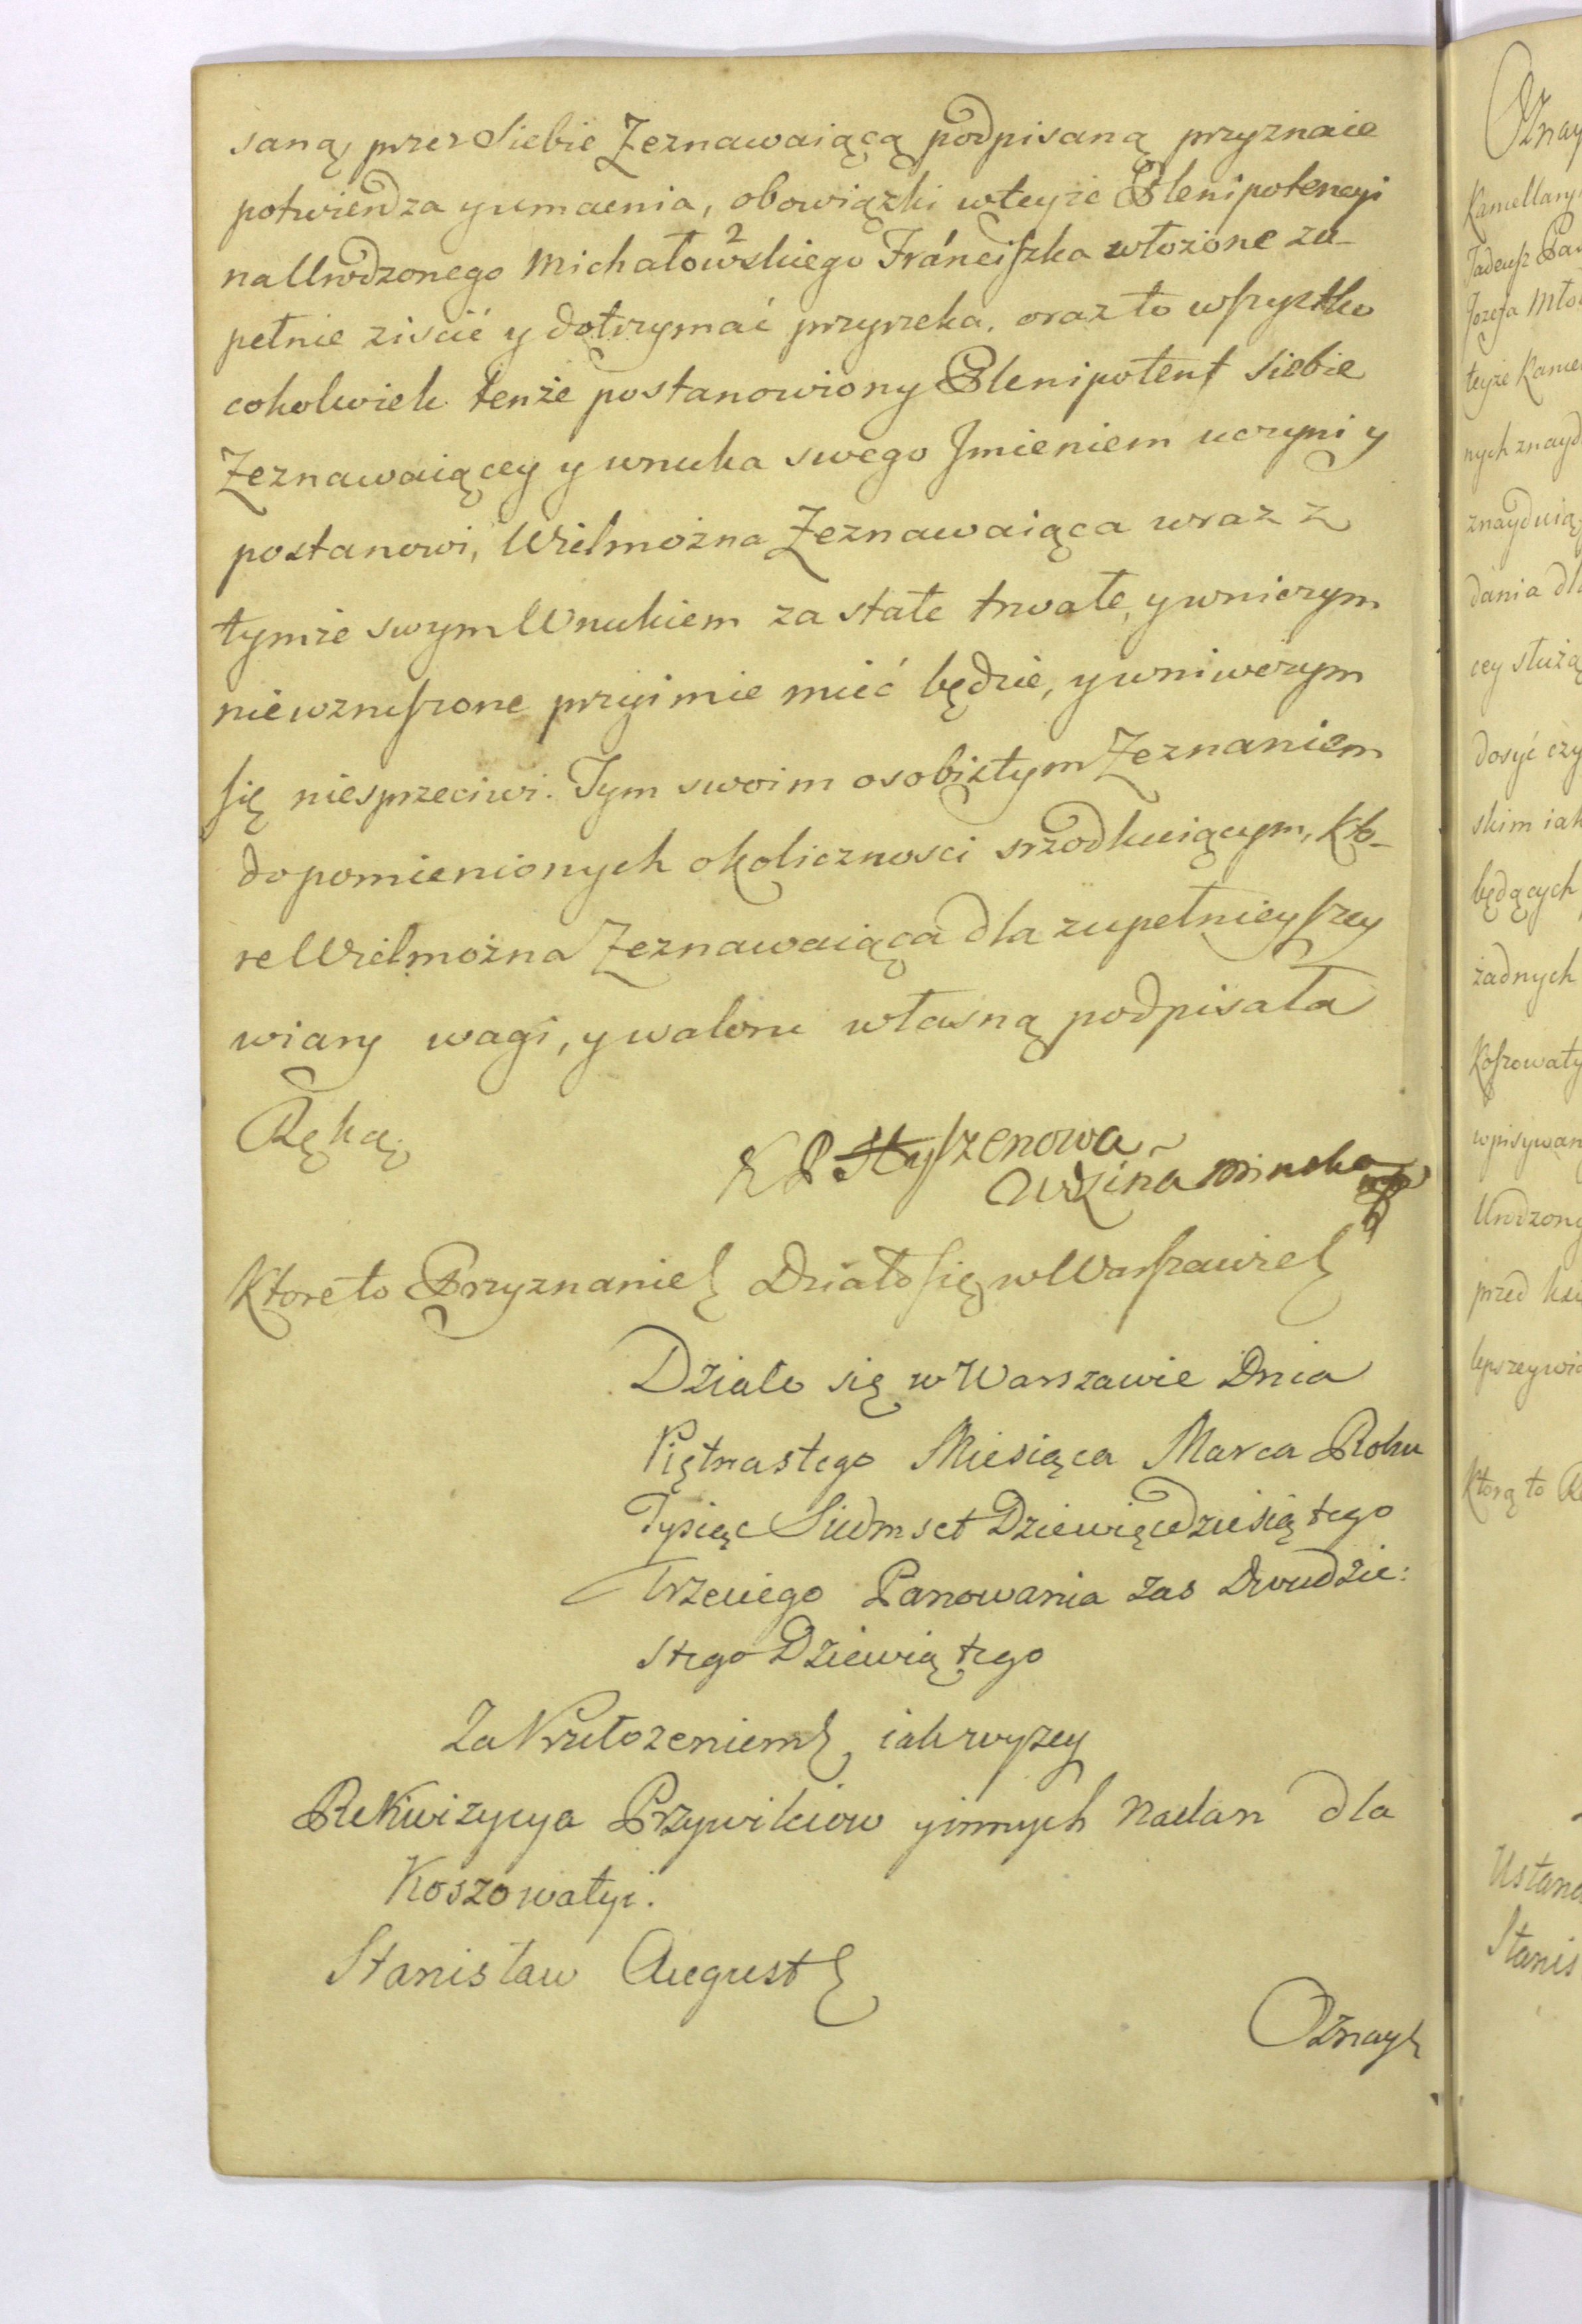 saną, przez Siebie Zeznawaiącą podpisaną przyznaie
potwierdza y umacnia, obowiązki wteyże Plenipotencyi
na Urodzonego Michałowskiego 2 Fránciszka włożone zu-
pełnie ziscić y dotrzymać przyrzeka, oraz to wszystko
cokolwiek tenże postanowiony Plenipotent Siebie
Zeznawaiącey y wnuka swego Jmieniem uczyni y
postanowi, Wielmożna Zeznawaiąca wraz z
tymże swym Wnukiem za stałe trwałe, y wniczym
niewzruszone przyimie mieć będzie, y wniwczym
się niesprzeciwi. Tym swoim osobistym Zeznaniem
do pomienionych okolicznosci srzodkuiącym, kto-
re Wielmożna Zeznawaiąca dla zupełnieyszey
wiary wagi, y waloru własną podpisała
Ręką.
K P Styszenowa
Ktore to Przyznanie Działo się w Warszawie
Działo się w Warszawie Dnia
Piętnastego Miesiąca Marca Roku
Tysiąc Siedmset Dziewięcdziesiątego
Trzeciego Panowania zas Dwudzie:
stego Dziewiątego
Za Przełozeniem iak wyzey
Rekwizycya Przywileiow y innych Nadan dla
Koszowatyi.
Stanisław August
Oznay
Oznay
Kancellary
Tadeusz
Jozefa Mło
teyże Kance
nych znayd
znayduią
dania dla
cey służą
dosyć czy
skim iak
będących
żadnych
Koszowaty
wpisywan
Urodzony
przed
lepszey wia
Ktorą to Re
Ustano
Stanis